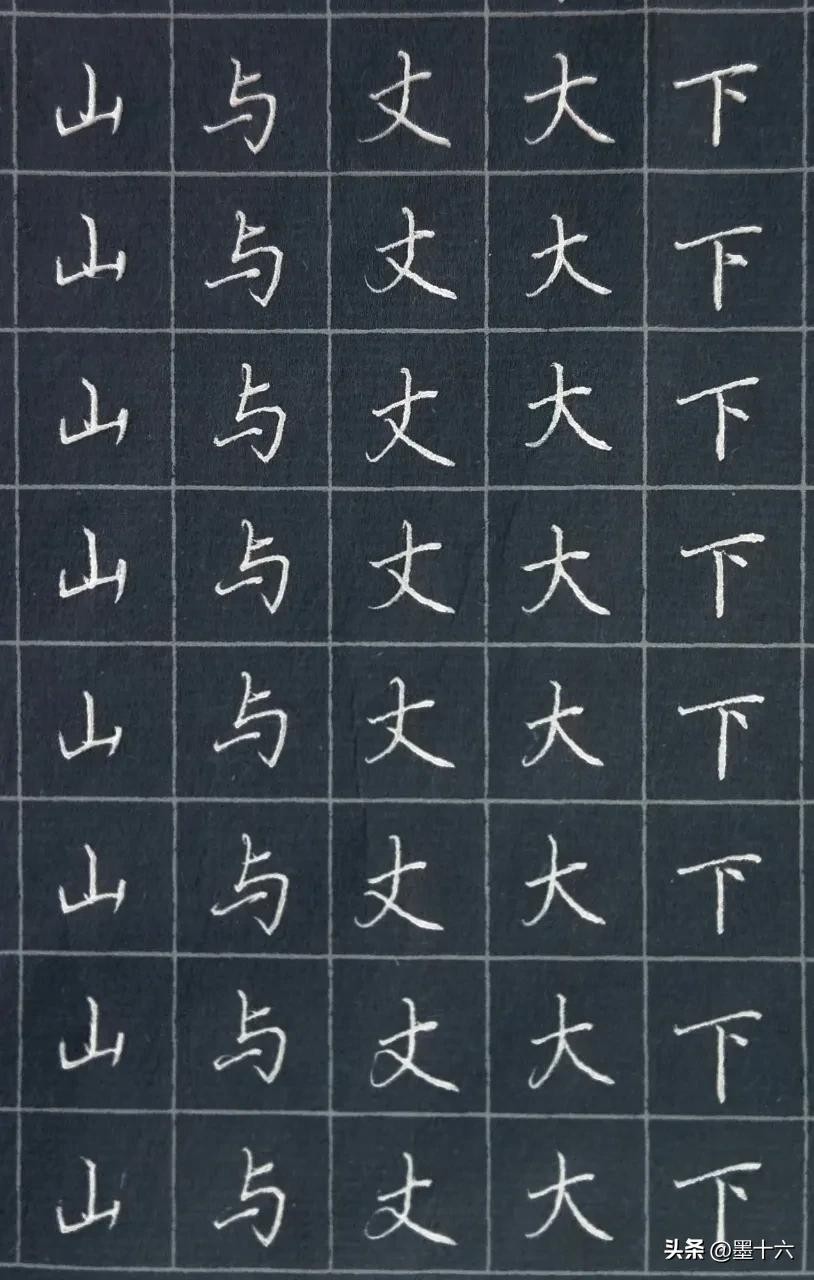 山与丈大下
山与丈大下
山与丈大下
山与丈大下
山与丈大下
山与丈大下
山与丈大下
山与丈大下
头条 @墨十六